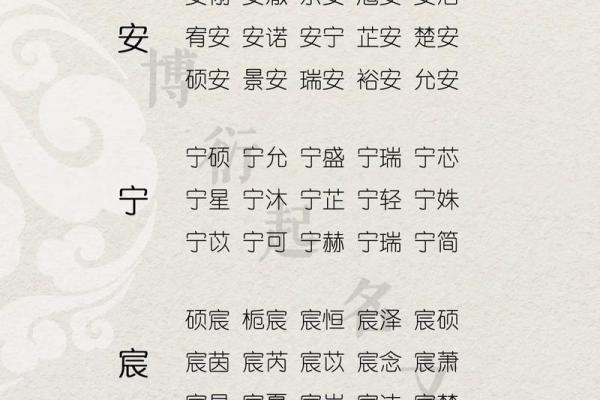 安
宥安 安诺 安宁 芷安 楚安
硕安 景安 瑞安 裕安 允安
宁
宁硕 宁允 宁盛 宁瑞 宁芯
宁星 宁沐 宁芷 宁轻 宁姝
宁苡 宁可 宁赫 宁瑞 宁简
宸
硕宸 栀宸 宸恒 宸泽 宸硕
宸茵 宸芮 宸苡 宸念 宸萧
博衍起名